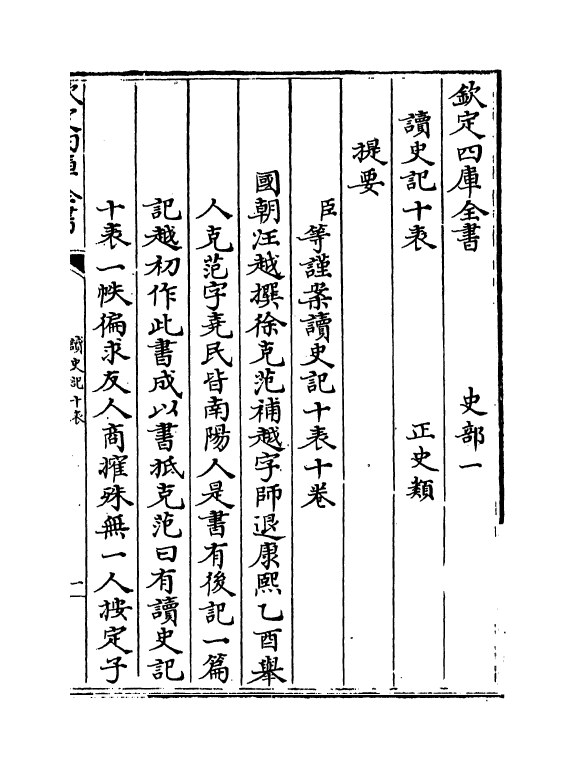 欽定四庫全書 史部一
讀史記十表 正史類
提要
臣等謹案讀史記十表十卷
國朝汪越撰徐克范補越字師退康熙乙酉舉
人克范字堯民皆南陽人是書有後記一篇
記越初作此書成以書抵克范曰有讀史記
十表一帙徧求友人商搉殊無一人按定子
欽定四庫全書
讀史記十表
一